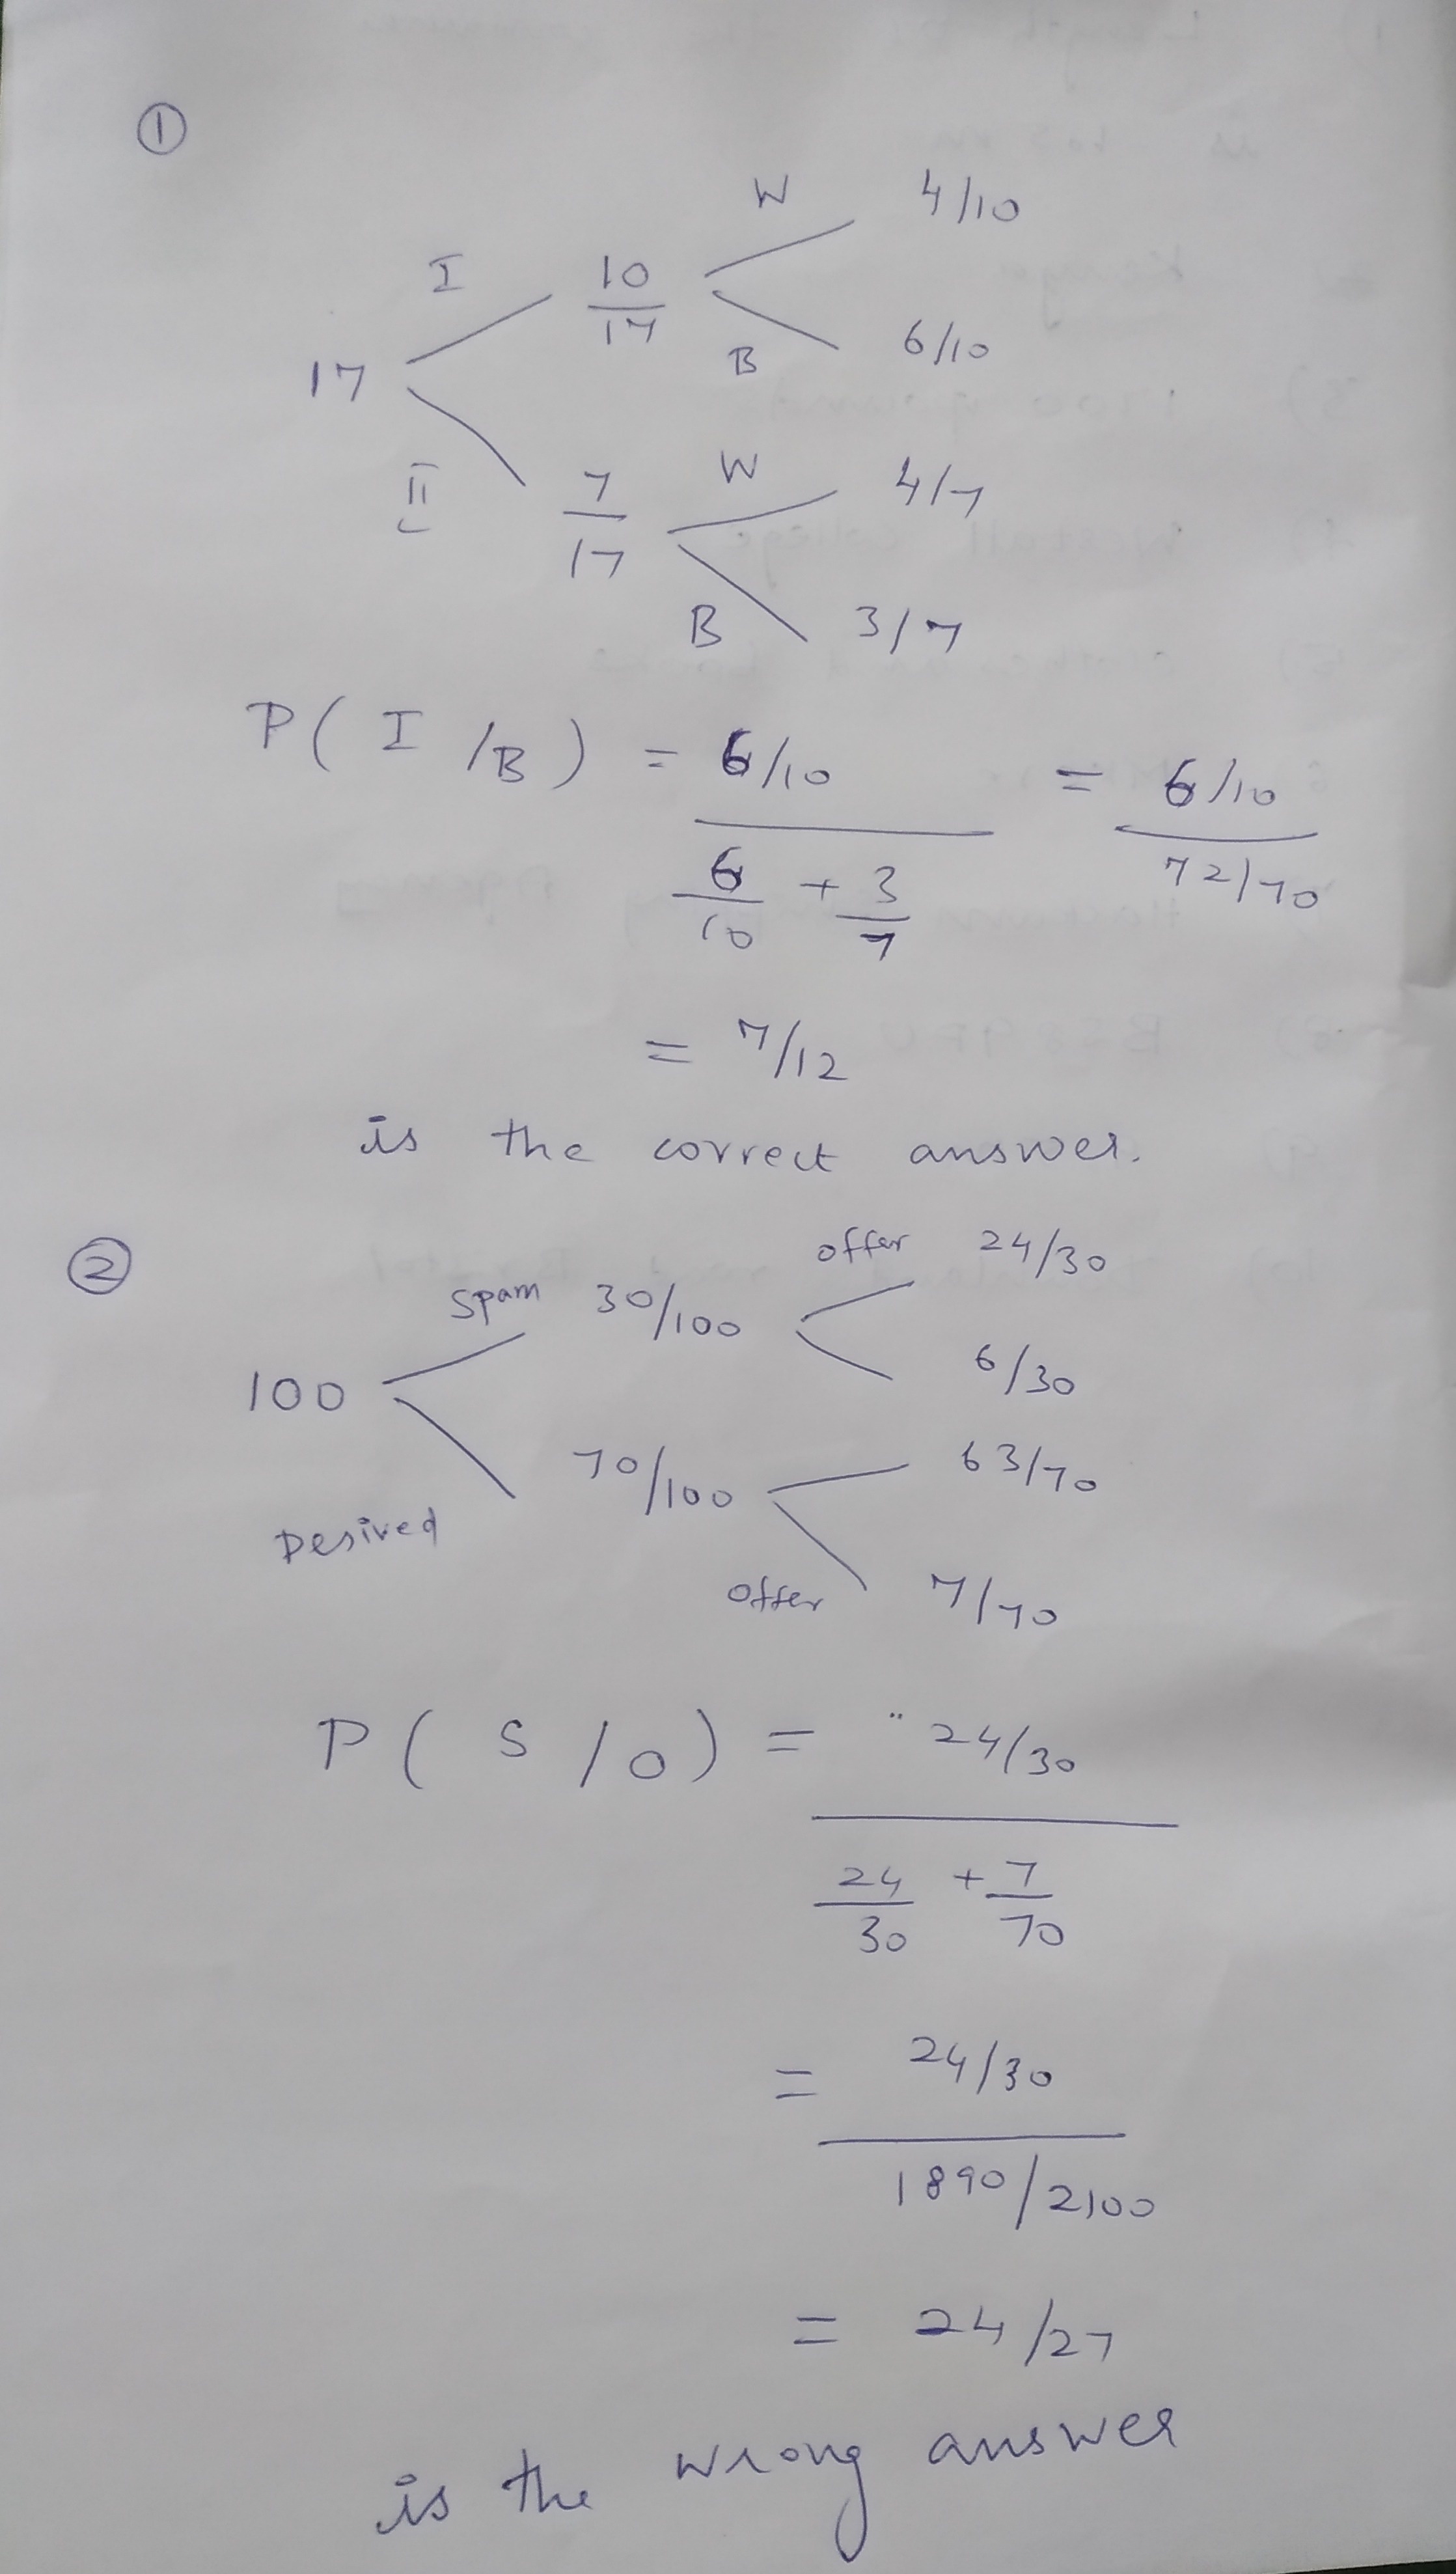 ①
W 4/10
I 10/17
B 6/10
17
W 4/7
II 7/17
B 3/7
P( I /B ) = 6/10 / 6/10 + 3/7 = 6/10 / 72/70
= 7/12
is the correct answer.
②
offer 24/30
Spam 30/100
6/30
100
63/70
70/100
Desired
offer 7/70
P( S /O ) = 24/30 / 24/30 + 7/70
= 24/30 / 1890/2100
= 24/27
is the wrong answer